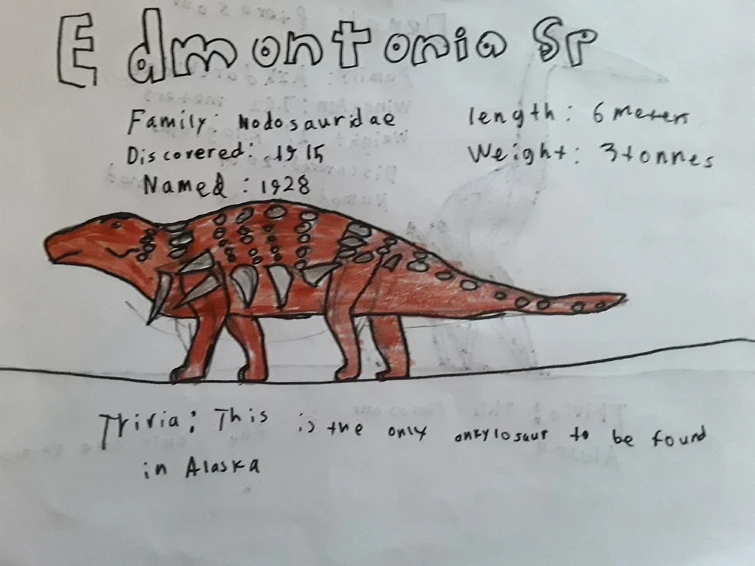 Edmontonia Sp
Family: Nodosauridae
length: 6 meters
Discovered: 1915
Weight: 3 tonnes
Named: 1928
Trivia: This is the only ankylosaur to be found
in Alaska